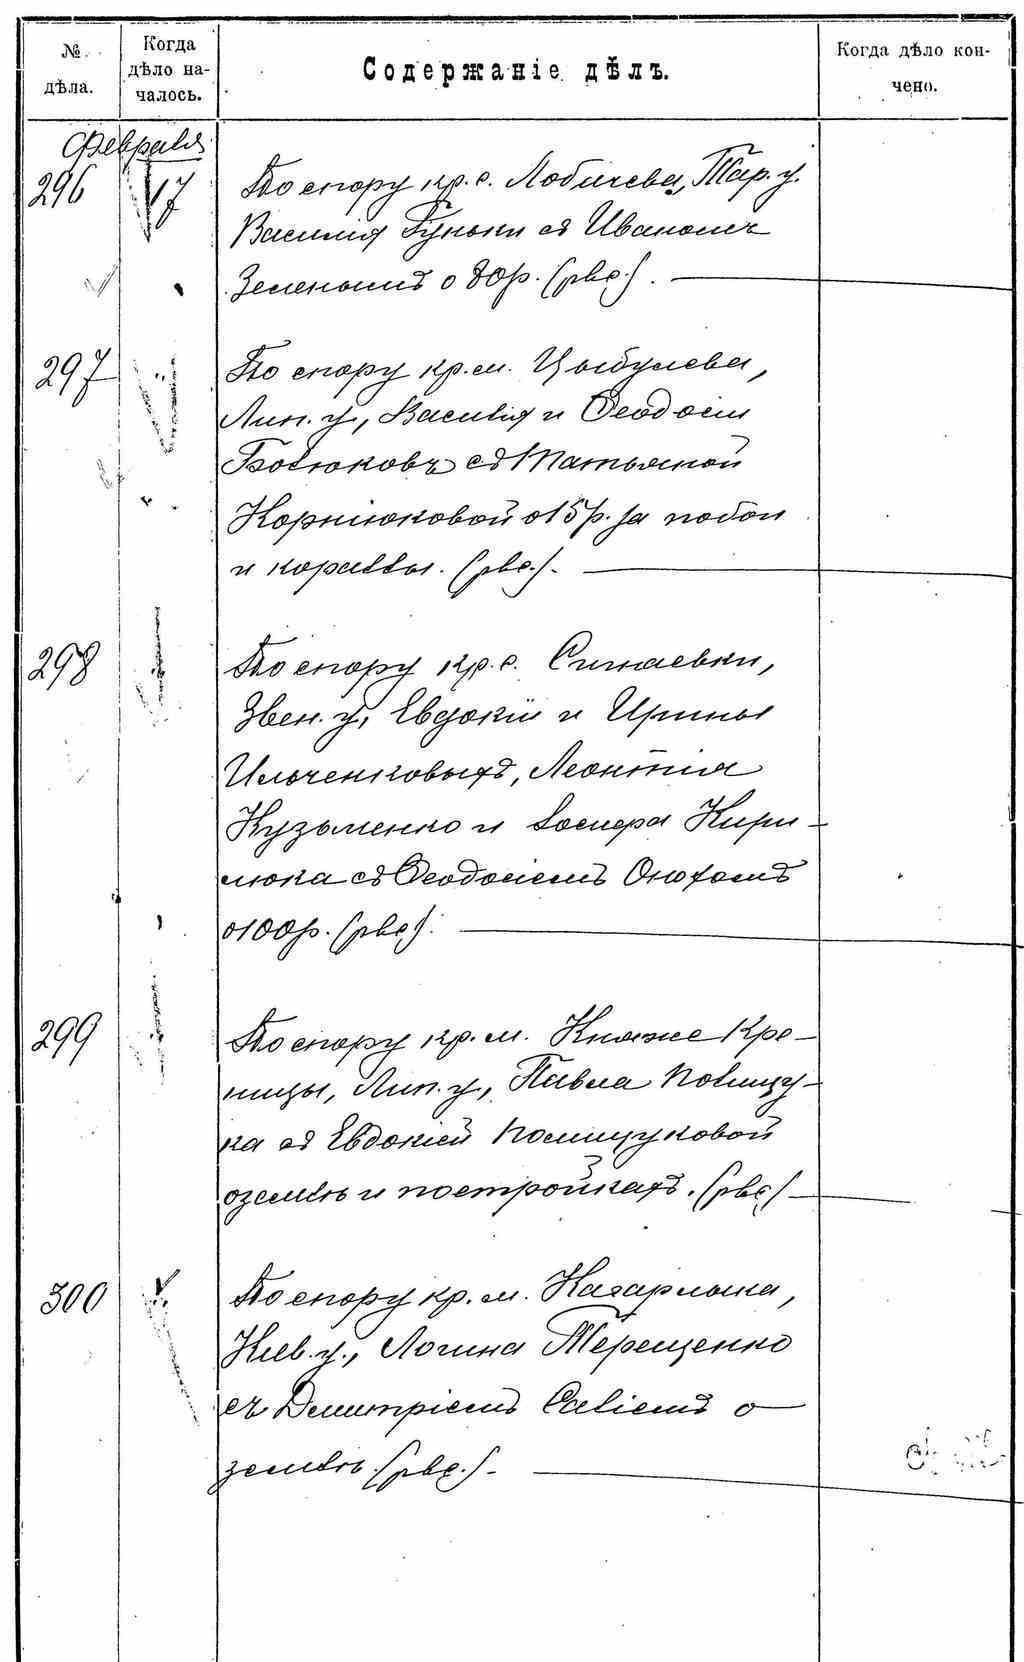 № дѣла.
Когда дѣло началось.
Содержаніе дѣлъ.
Когда дѣло кончено.
Февраля
296
17
По спору кр. с. Лобичева, Тар. у.
Василія Гуньки съ Иваномъ
Зеленымъ о 80р. (рвс.).
297
По спору кр. м. Цыбулева,
Лип. у., Василія и Ѳеодосіи
съ Татьяной
Корнюковой о 15р. за побои
и коравы. (рвс.).
298
По спору кр. с. Синаевки,
Звен. у., Евдокіи и Ирины
Ильченковыхъ, Леонтія
Кузьменко и Іосифа Кири-
люка съ Ѳеодосіемъ Онюхомъ
о 100р. (рвс).
299
По спору кр. м. Княже Кри-
ницы, Лип. у., Павла Полищу-
ка съ Евдокіей Полищуковой
о землѣ и постройкахъ. (рвс)
300
По спору кр. м. Кагарлыка,
Кіев. у., Логина Терещенко
съ Димитріемъ Савіемъ о
землѣ. (рвс.).